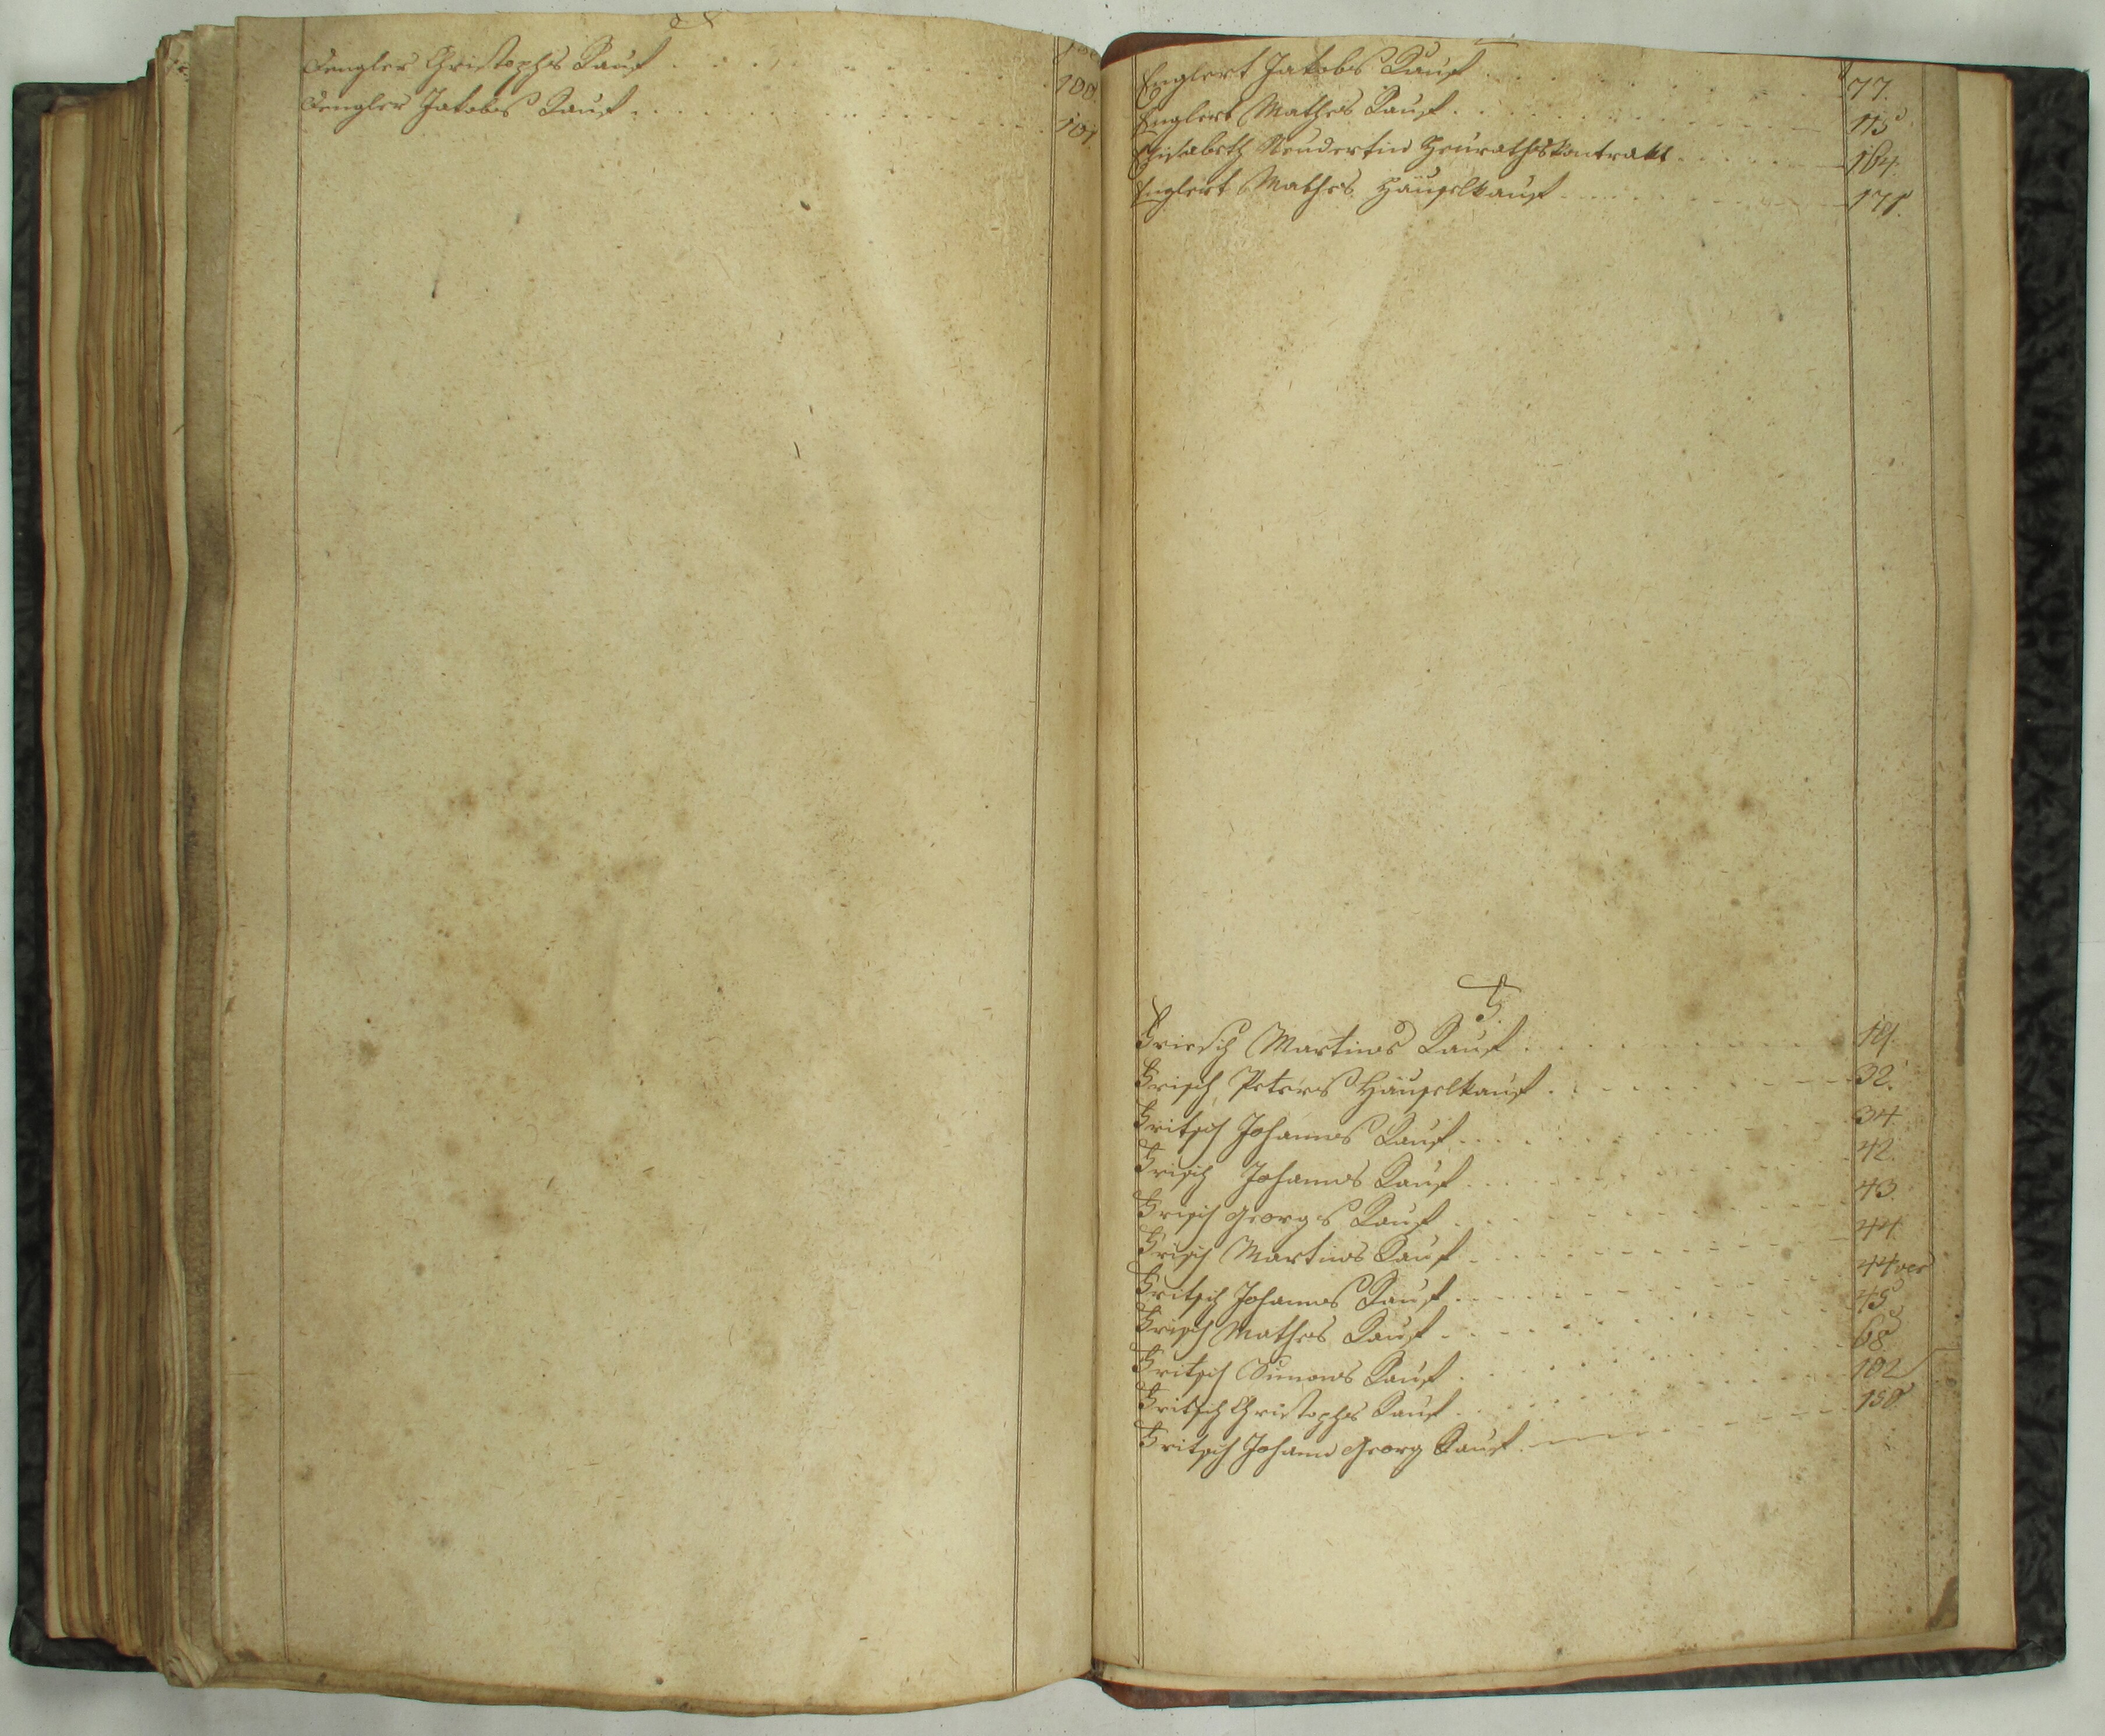 Dengler Christophs Kauf 100.
Dengler Jakobs Kauf 101.
Englert Jakobs Kauf 77.
Englert Mathes Kauf 115
Elisabeth Neudertin Heurathskontrakt 164.
Englert Mathes Häuselkauf 171.
F.
Friesch Martins Kauf 18.
Frisch Peters Häuselkauf 32.
Fritsch Johannes Kauf 34
Frisch Johannes Kauf 42.
Frisch Georgs Kauf 43.
Frisch Martins Kauf 44
Fritsch Johannes Kauf 44
Frisch Mathes Kauf 45
Fritsch Simons Kauf 68
Fritsch Christophs Kauf 102
Fritsch Johann Georg Kauf 158